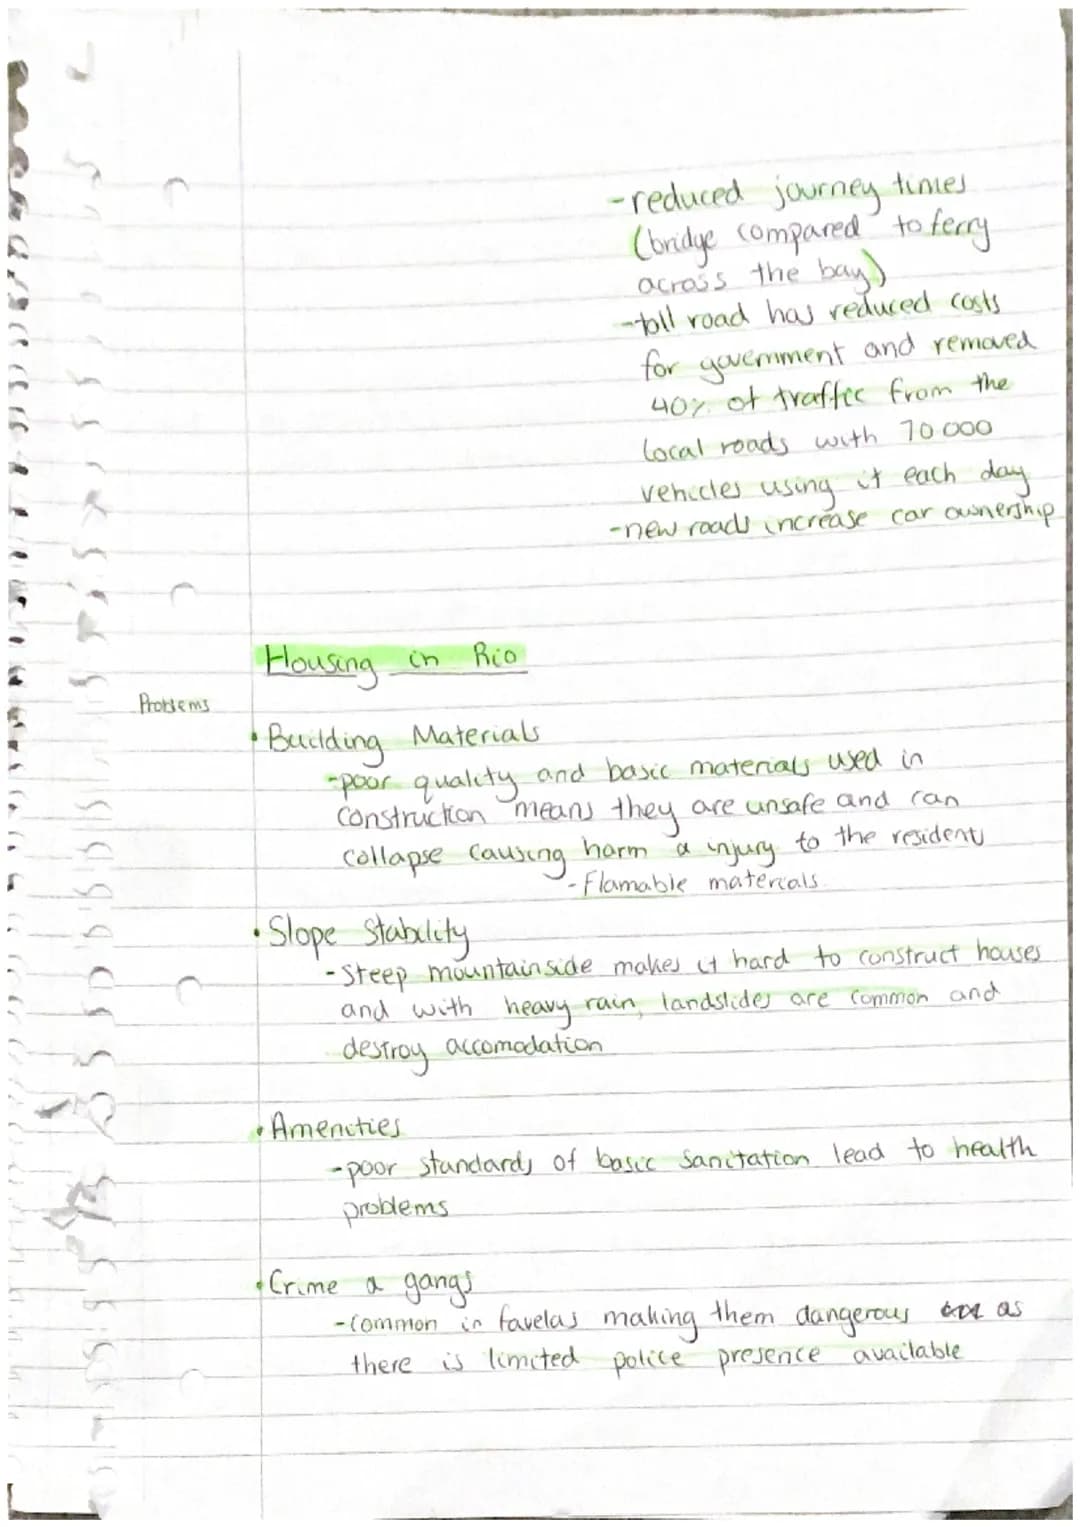 -reduced journey times
(bridge compared to ferry
across the bay)
-toll road has reduced costs
for government and removed
40% of traffic from the
local roads with 70 000
vehicles using it each day
-new roads increase car ownership
Housing in Rio
Problems
• Building Materials
-poor quality and basic materials used in
construction means they are unsafe and can
collapse causing harm & injury to the residents
-Flamable materials
• Slope Stability
-Steep mountainside makes it hard to construct houses
and with heavy rain, landslides are common and
destroy accomodation
• Amenities
-poor standards of basic sanitation lead to health
problems
• Crime & gangs
-common in favelas making them dangerous as
there is limited police presence available